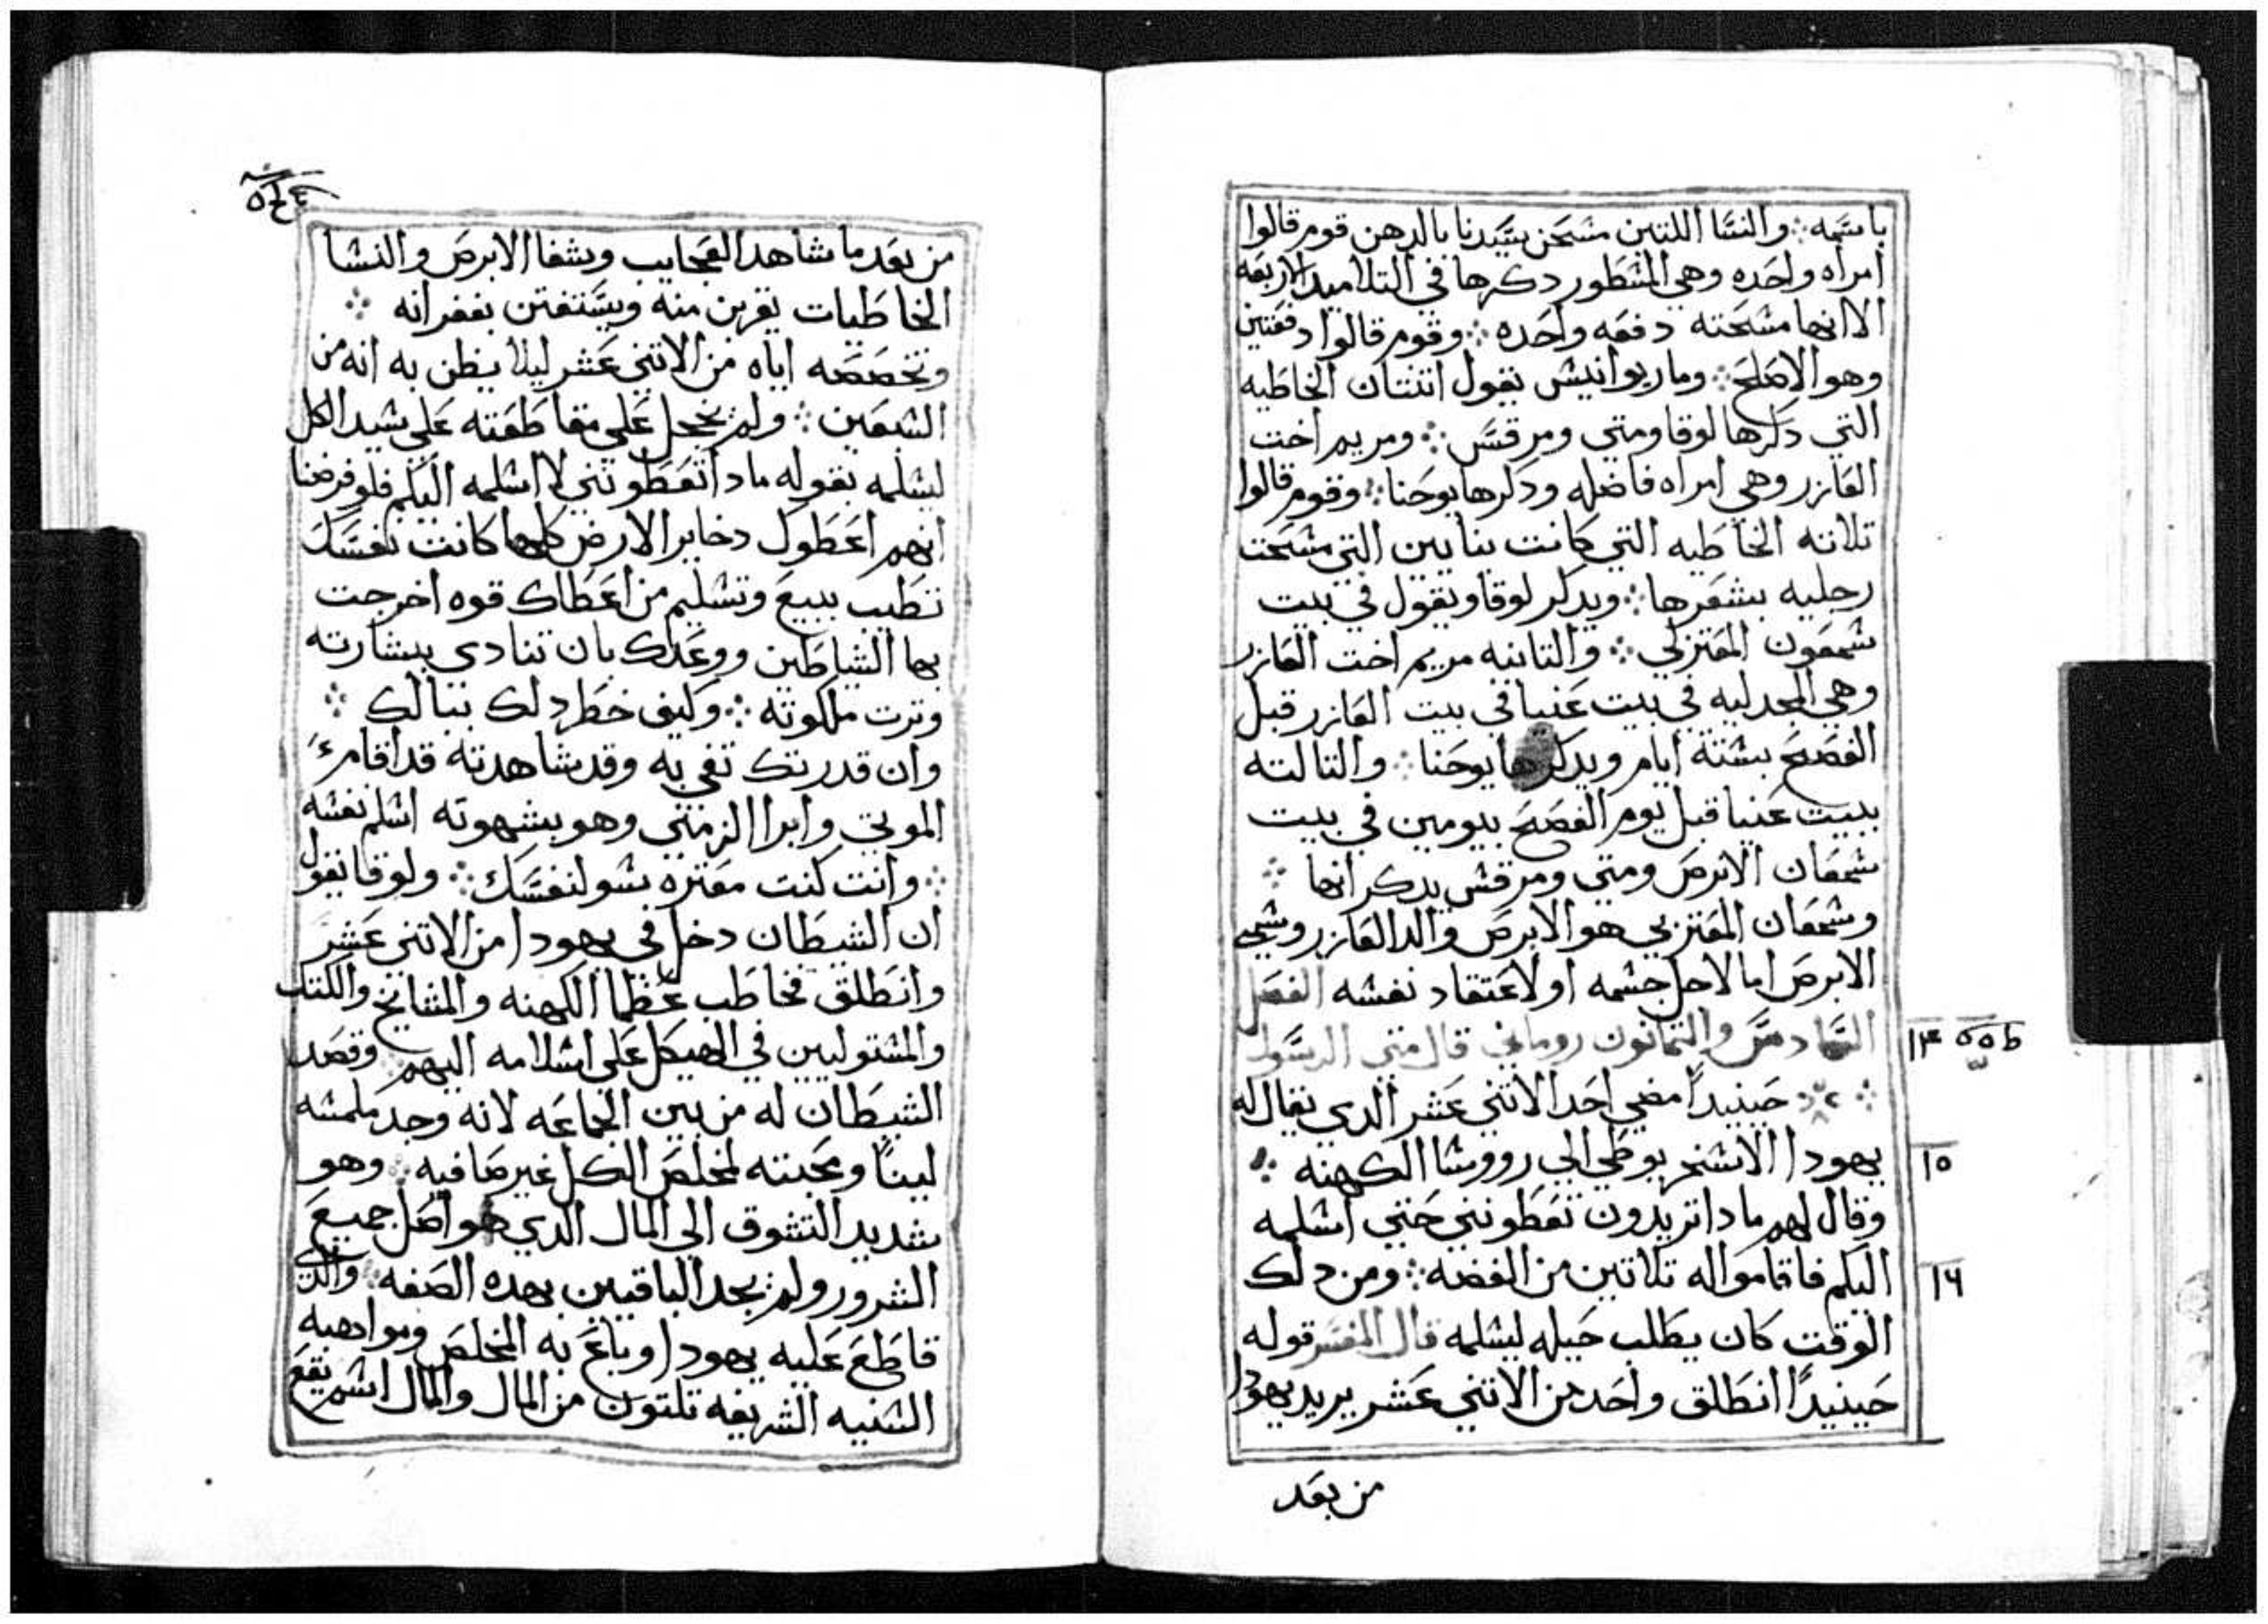 باسمه ⁘ والنسا اللتين مسحن سيدنا بالدهن قوم قالوا
امراه واحده وهي المسطور دكرها في التلاميد الاربعه
الا انها مسحته دفعه واحده ⁘ وقوم قالوا دفعتين
وهو الاصلح ⁘ وماريوانيس يقول اتنتان الخاطيه
التي دكرها لوقا ومتي ومرقس ⁘ ومريم اخت
العازر وهي امراه فاضله ودكرها يوحنا ⁘ وقوم قالوا
تلاته الخاطيه التي كانت بنايين التي مسحت
رجليه بشعرها ⁘ ويدكر لوقا ويقول في بيت
شمعون المعتزلي ⁘ والتانيه مريم اخت العازر
وهي المجدليه في بيت عنيا في بيت العازر قبل
الفصح بسته ايام ويدكرها يوحنا ⁘ والتالته
ببيت عنيا قبل يوم الفصح بيومين في بيت
شمعان الابرص ومتي ومرقس يدكرانها ⁘
وشمعان المعتزلي هو الابرص والد العازر وسمي
الابرص اما لاجل جسمه او لاعتقاد نفسه الفصل
السادس والتمانون روماني قال متي الرسول
⁘ حينيدًا مضي احد الاتني عشر الدي يقال له
يهودا الاسخريوطي الي رووسا الكهنه ⁘
وقال لهم مادا تريدون تعطونني حتي اسلمه
اليكم فاقاموا له تلاتين من الفضه ⁘ ومن دلك
الوقت كان يطلب حيله ليسلمه قال المفسر قوله
حينيدًا انطلق واحد من الاتني عشر يريد يهودا
من بعد
١٤
١٥
١٦
من بعد ما شاهد العجايب وشفا الابرص والنسا
الخاطيات يقربن منه ويستغتن بغفرانه ⁘
وتخصصه اياه من الاتني عشر ليلا يظن به انه من
السبعين ⁘ ولم يخجل علي مقاطعته علي سيد الكل
ليسلمه بقوله مادا تعطونني لا اسلمه اليكم فلو فرضنا
انهم اعطوك دخاير الارض كلها كانت نفسك
تطيب ببيع وتسليم من اعطاك قوه اخرجت
بها الشياطين ووعدك بان تنادي ببشارته
وترت ملكوته ⁘ وكيف خطر دلك ببالك ⁘
وان قدرتك تفي به وقد شاهدته قد اقام
الموتي وابرا الزمني وهو بشهوته اسلم نفسه
⁘ وانت كنت معتره بسو لنفسك ⁘ ولوقا يقول
ان الشيطان دخل في يهودا من الاتني عشر
وانطلق فخاطب عظما الكهنه والمشايخ والكتاب
والمستوليين في الهيكل علي اسلامه اليهم ⁘ وقصد
الشيطان له من بين الجماعه لانه وجد ملمسه
لينًا ومحبته لمخلص الكل غير صافيه ⁘ وهو
شديد التشوق الي المال الدي هو اصل جميع
الشرور ولم يجد الباقيين بهده الصفه ⁘ والدي
قاطع عليه يهودا وباع به المخلص ومواهبه
السنيه الشريفه تلتون من المال والمال اسم يقع